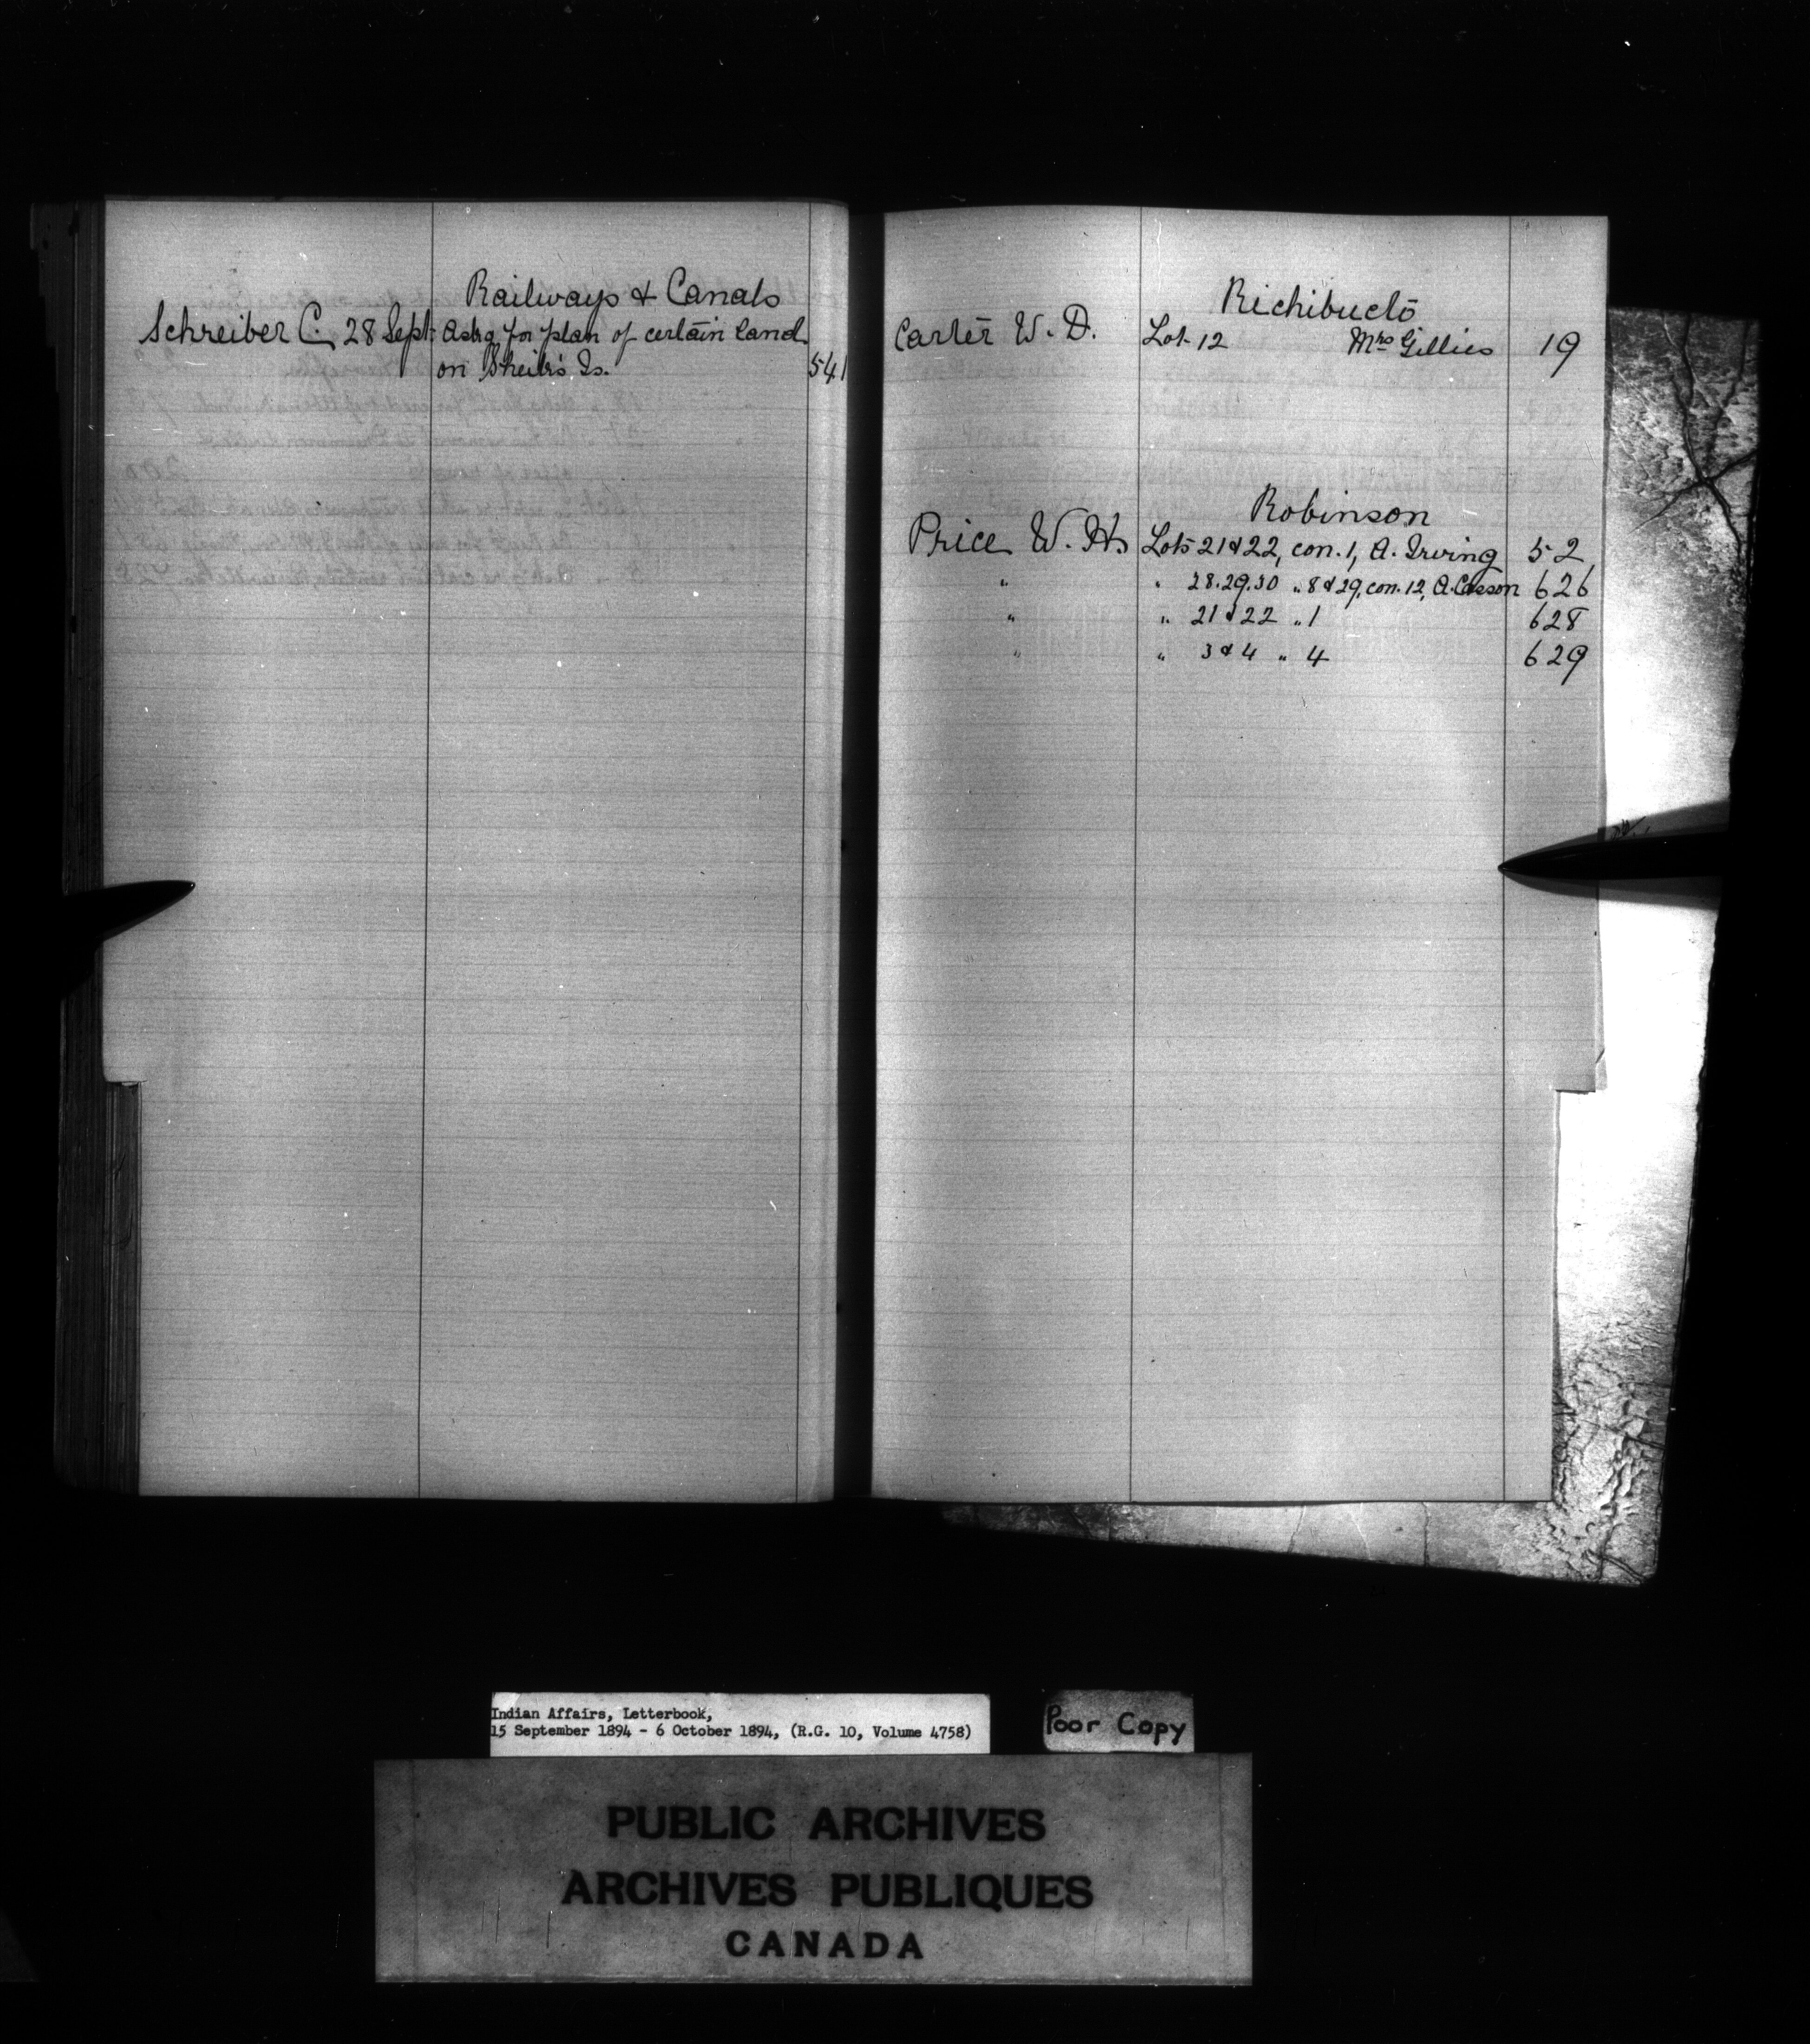 Railways & Canals
Schreiber C. 28 Sept. Askg for plan of certain land
on Sheik's Is. 541
Richibucto
Carter W. D. Lot 12 Mrs Gillies 19
Robinson
Price W. H. Lots 21 & 22, con. 1, A. Irving 52
" " 28.29.30 " 8 & 29, con. 12, A. Casson 626
" " 21 & 22 " 1 628
" " 3 & 4 " 4 629
Indian Affairs, Letterbook,
15 September 1894 - 6 October 1894, (R.G. 10, Volume 4758)
Poor Copy
PUBLIC ARCHIVES
ARCHIVES PUBLIQUES
CANADA